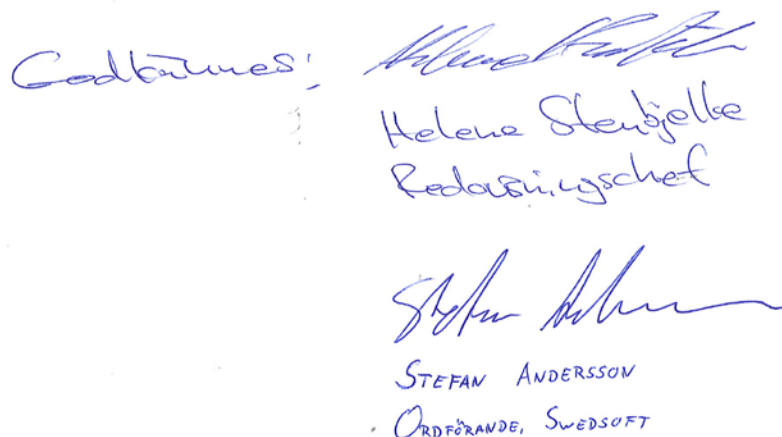 Godkännes:
Helene Stenbjelke
Redovisningschef
Stefan Andersson
STEFAN ANDERSSON
ORDFÖRANDE, SWEDSOFT